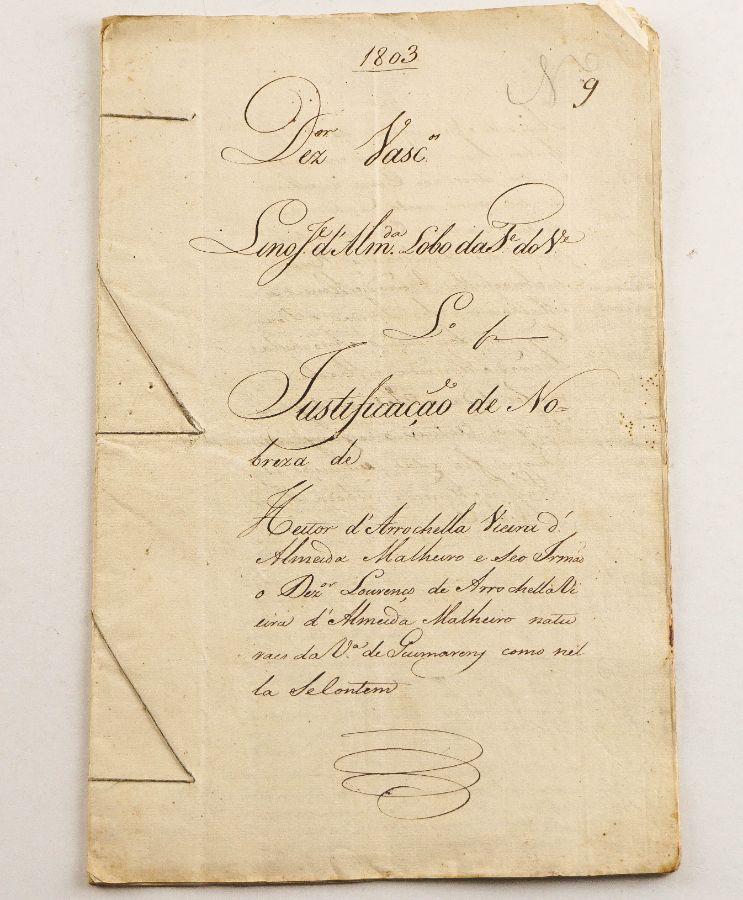 1803
Nº 9
Dezor Vascos
Lino Je d'Almda Lobo da Fª do Ve
Lº fr
Justificação de No-
breza de
Heitor d'Arrochella Vieira d'
Almeida Malheiro e seo Irmão
o Dezor Lourenço de Arrochella Vi
eira d'Almeida Malheiro natu
raes da Vª de Guimarens como nel
la se contem